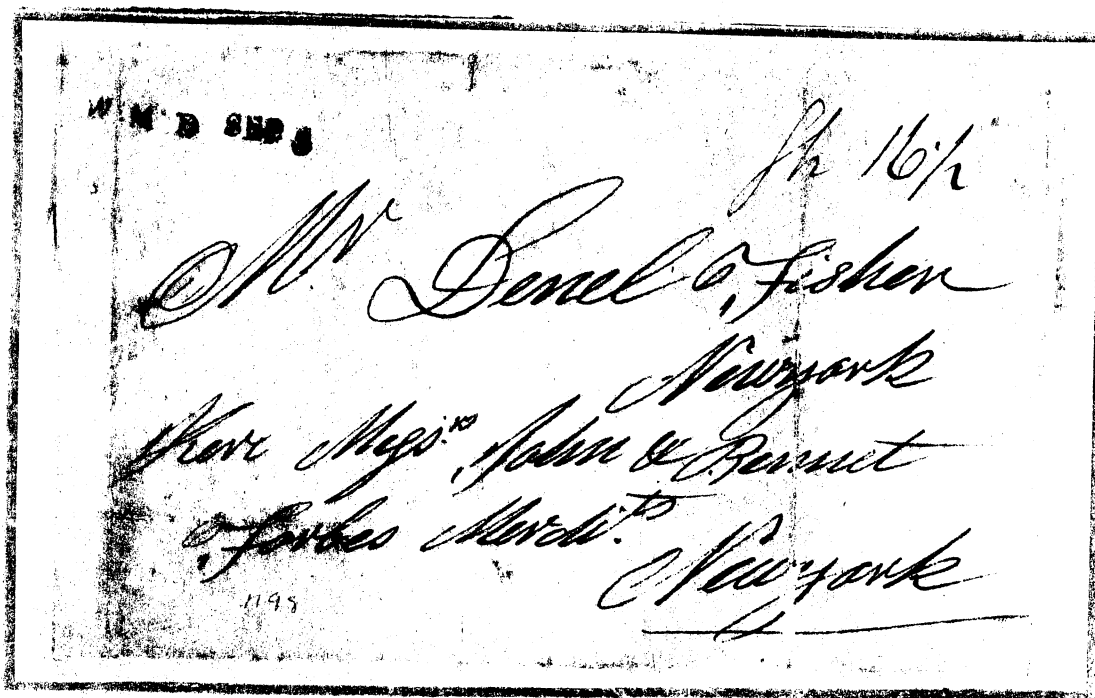 W M D SEP 8
Sh 16/2
Mr Denel Fisher
Newyork
Kerr Mess.rs John & Bennet
Forbes Merch.ts
Newyork
1798